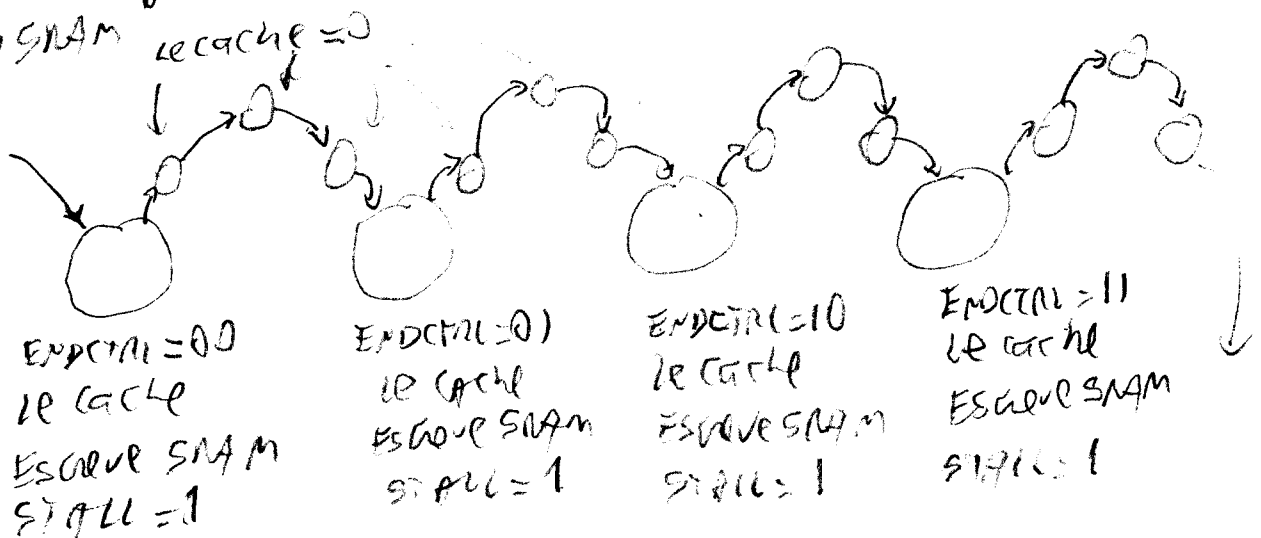 SRAM le cache = 0
ENDCTRL = 00
le cache
Escreve SRAM
STALL = 1
ENDCTRL = 01
le cache
Escreve SRAM
STALL = 1
ENDCTRL = 10
le cache
Escreve SRAM
STALL = 1
ENDCTRL = 11
le cache
Escreve SRAM
STALL = 1